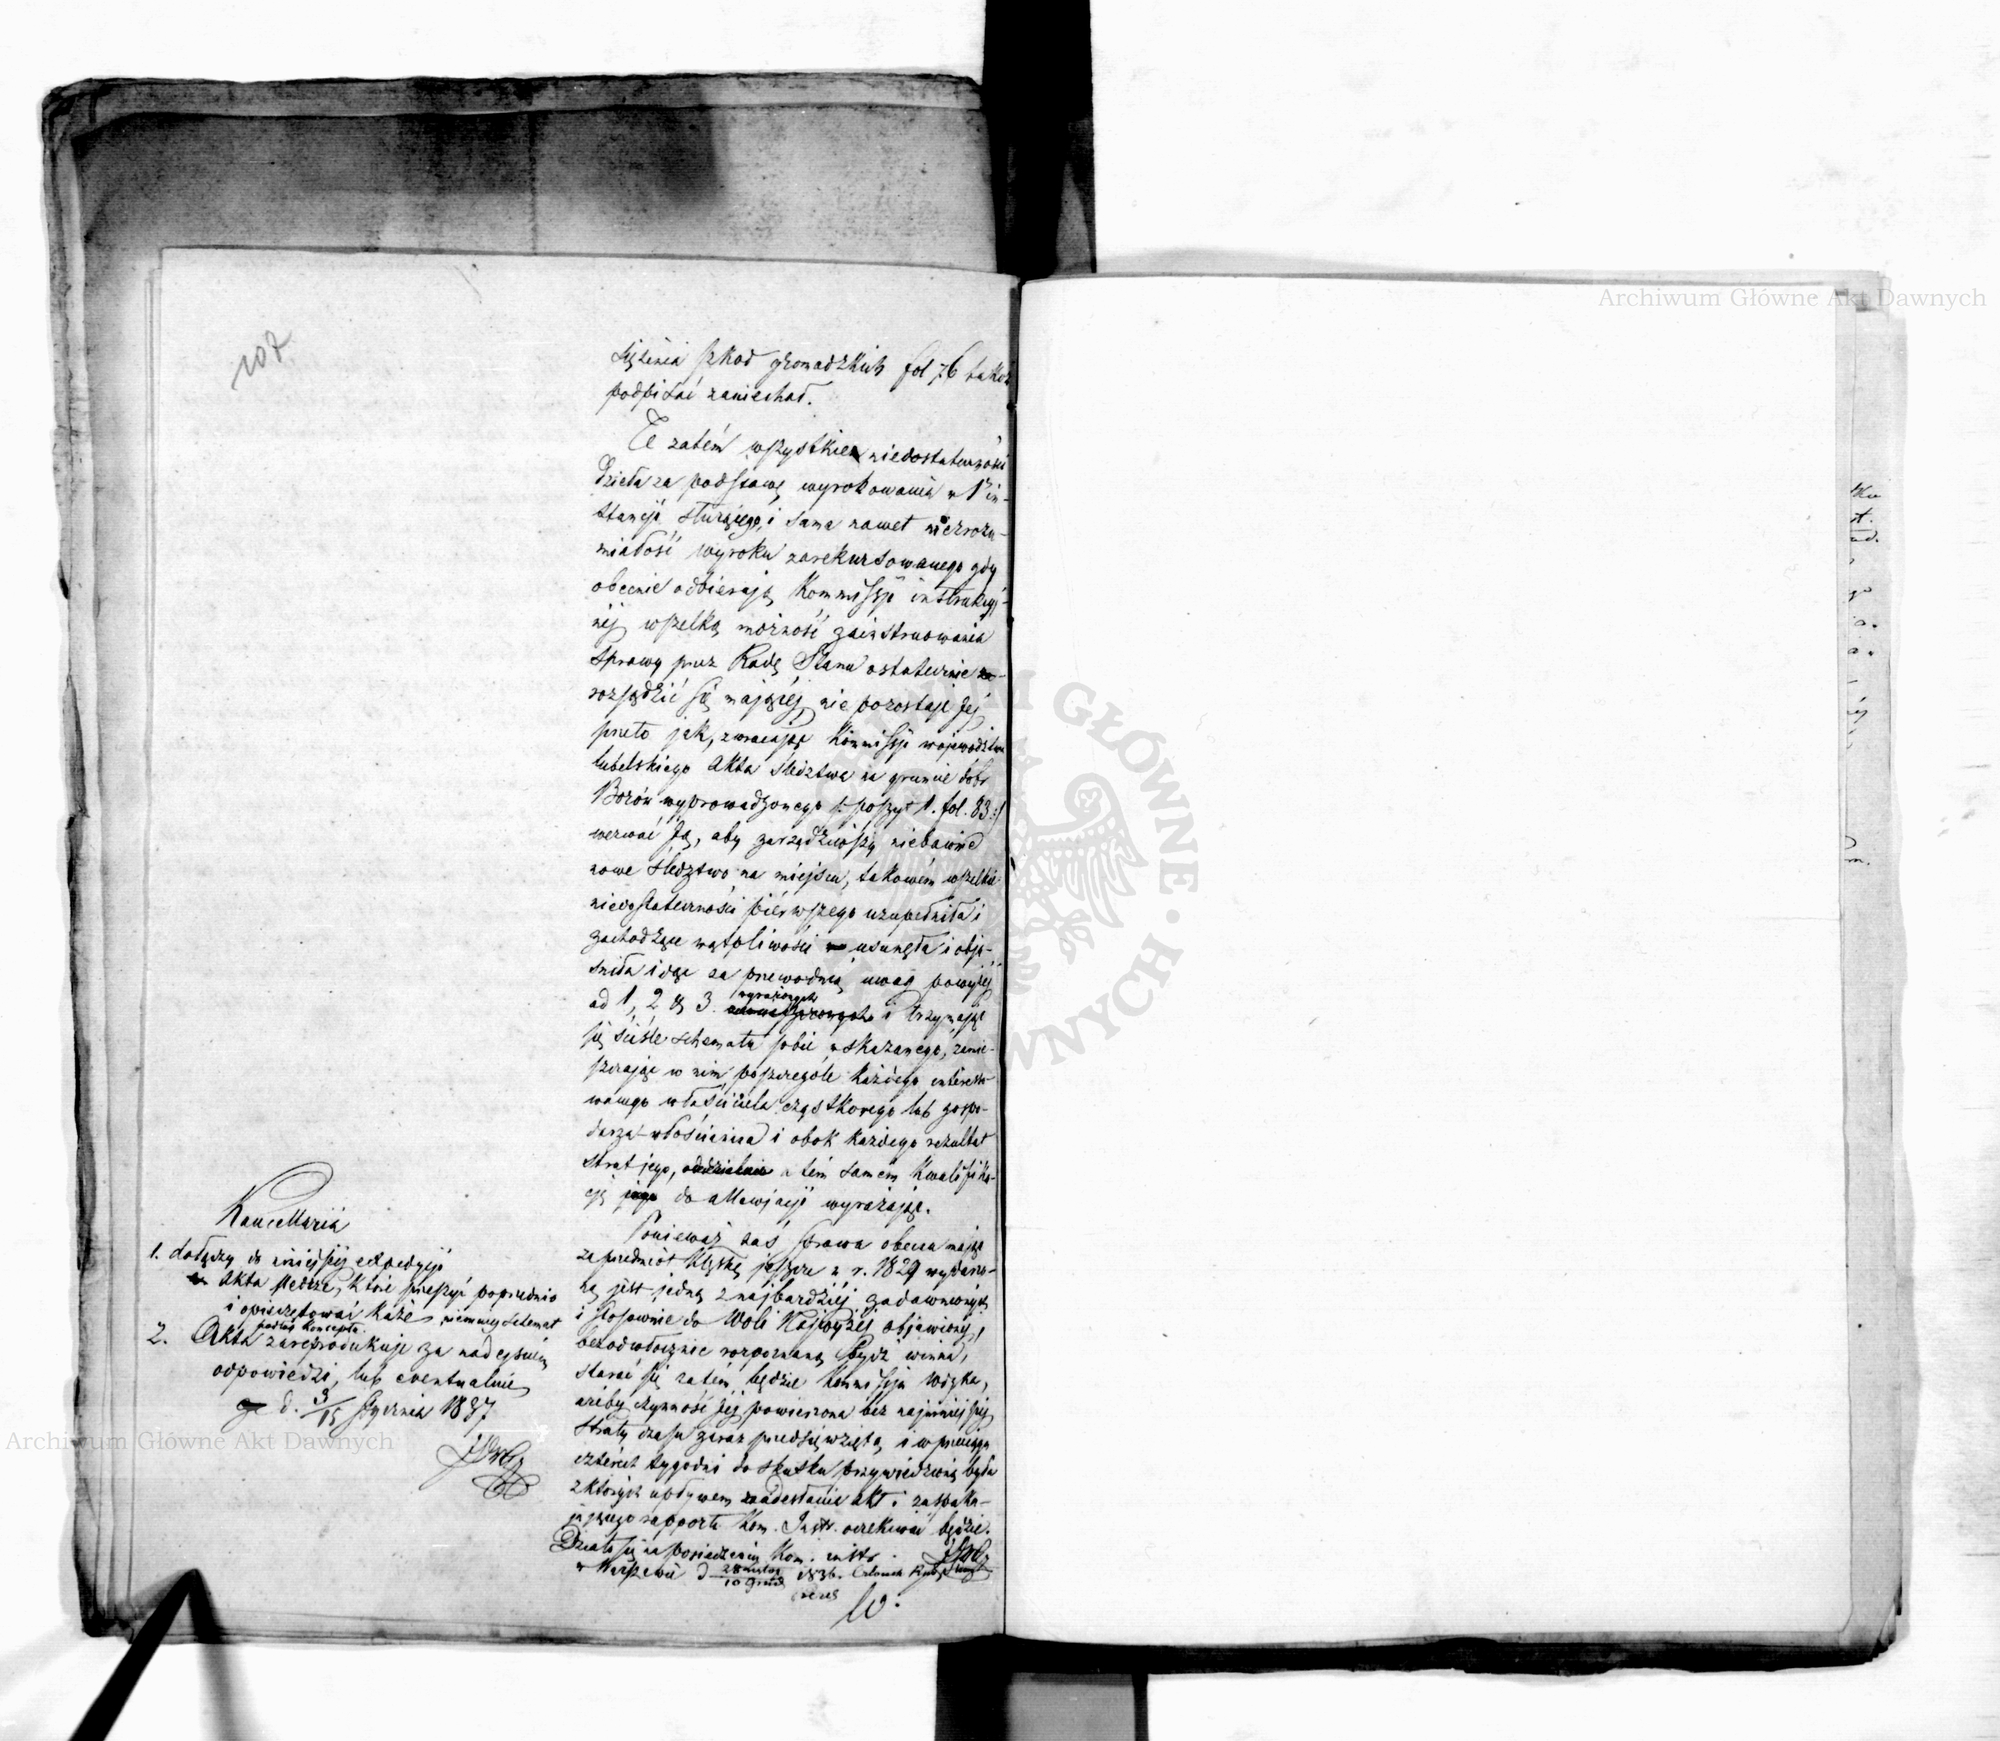 107
szkod gromadzkich fol 76 także
podpisać zaniechał.
Te zatém wszystkie niedostateczności
dzieła za podstawę wyrokowania w 1éj in-
stancji służącego, i sama nawet niezrozu-
miałość wyroku zarekursowanego gdy
obecnie odbierają Kommissji instrukcyj-
néj wszelką możność zainstruowania
sprawy przez Radę Stanu ostatecznie
rozsądzić się mającéj, nie pozostaje Jéj
przeto jak, zwracając Kommissji województwa
lubelskiego akta śledztwa na gruncie dóbr
wyprowadzonego /: poszyt 1. fol. 83 :/
wezwać Ją, aby zarządziwszy niebawnie
nowe śledztwo na miejscu, takowém wszelkie
niedostateczności piérwszego uzupełniła i
zachodzące wątpliwości usunęła i obja-
śniła idąc za przewodnią uwag powyżéj
ad 1, 2 & 3. wyrażonych i trzymając
się ściśle schematu sobie wskazanego, zamie-
szczając w nim poszczególe każdego interesso-
wanego właściciela cząstkowego lub gospo-
darza-włościanina i obok każdego rezultat
strat jego, a tém samém kwalifika-
cję do allewjacji wyrażając.
Ponieważ zaś sprawa obecna mając
za przedmiot klęskę jeszcze z r. 1829 wydarzo-
ną jest jedną z najbardziéj zadawnionych
i stosownie do Woli Najwyższéj objawionéj,
bezodwłocznie rozpoznaną bydź winna,
starać się zatém będzie Kommissja Wdzka,
ażeby czynność jéj powierzona bez najmniejszéj
straty czasu zaraz przedsięwziętą, i w przeciągu
cztérech tygodni do skutku przywiedzioną była
z których upływem nadesłania akt i zaspaka-
jającego rapportu Kom. Instr. oczekiwać będzie.
Działo się na posiedzeniu Kom. instr.
w Warszawie d 28 listop / 10 Grud 1836.
Kancellaria
1. dołączy do niniejszéj expedycji
akta śledcze, które przeszyć poprzednio
i opieczętować każe, niemniéj schemat
podług konceptu.
2. Akta zareprodukuje za nadejściem
odpowiedzi, lub eventualnie
d. 3/15 Stycznia 1837
Archiwum Główne Akt Dawnych
Archiwum Główne Akt Dawnych
ARCHIWUM GŁÓWNE AKT DAWNYCH